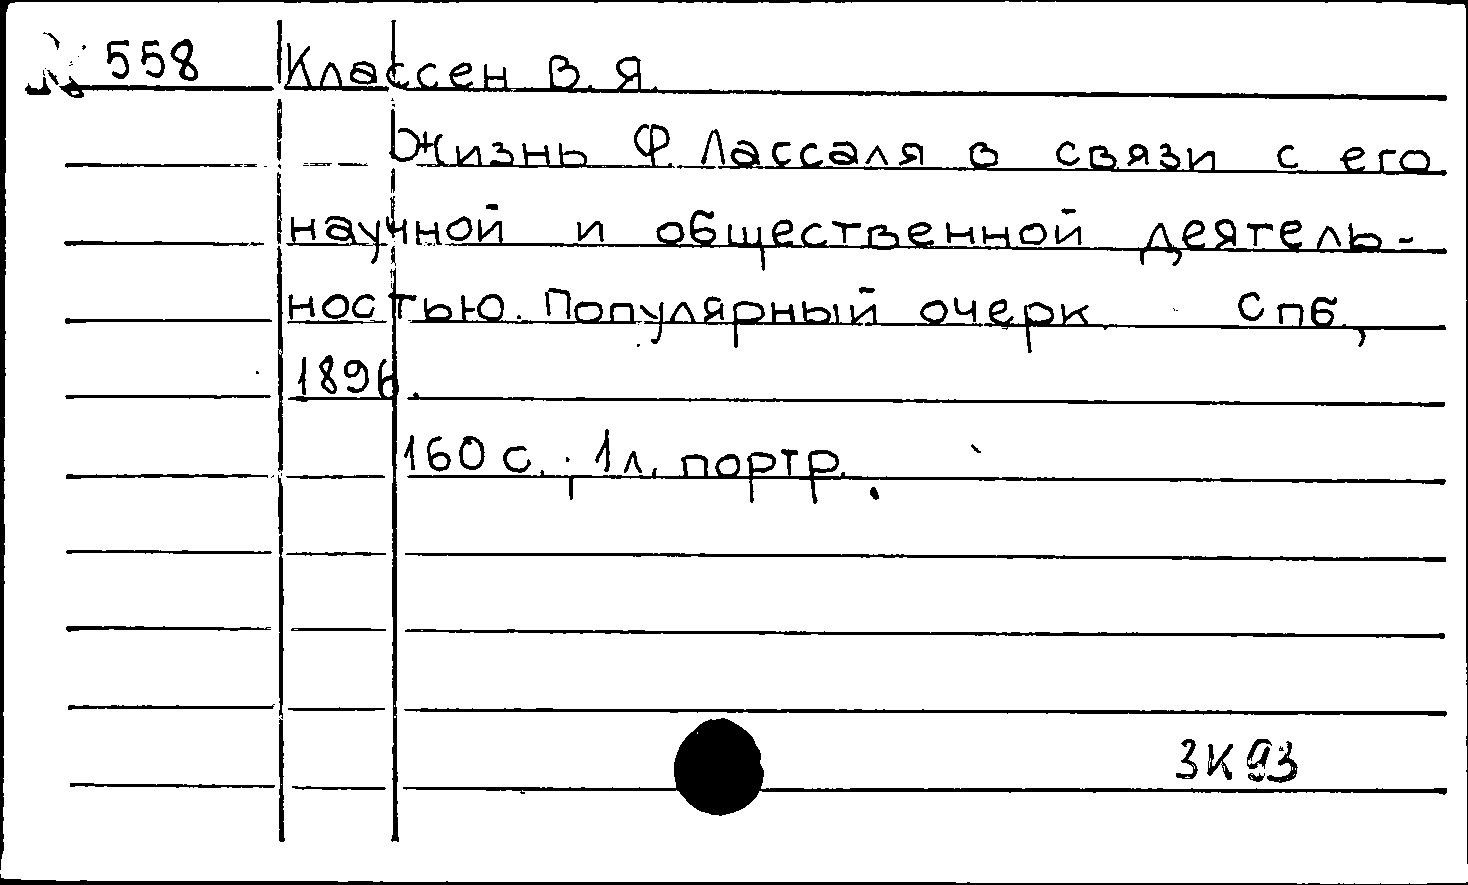 К 558 Классен В. Я.
Жизнь Ф. Лассаля в связи с его
научной и общественной деятель-
ностью. Популярный очерк. Спб.,
1896.
160 с.; 1 л. портр.
ЗК 93